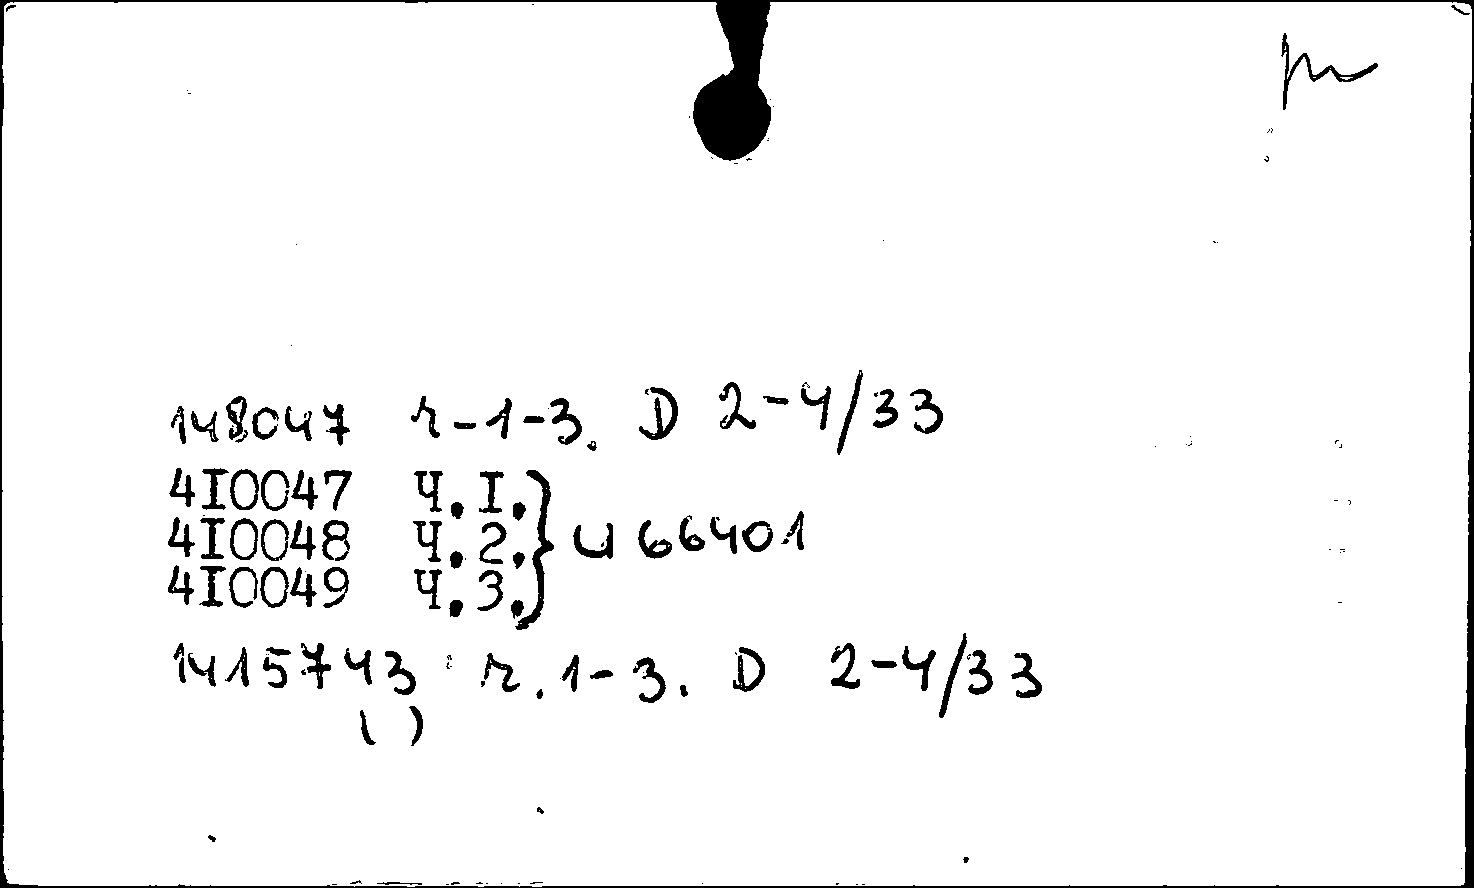 148047 ч-1-3. D 2-4/33
4I0047 Ч.I.
4I0048 Ч.2. } И 66401
4I0049 Ч.3.
1415743 ч.1-3. D 2-4/33
( )